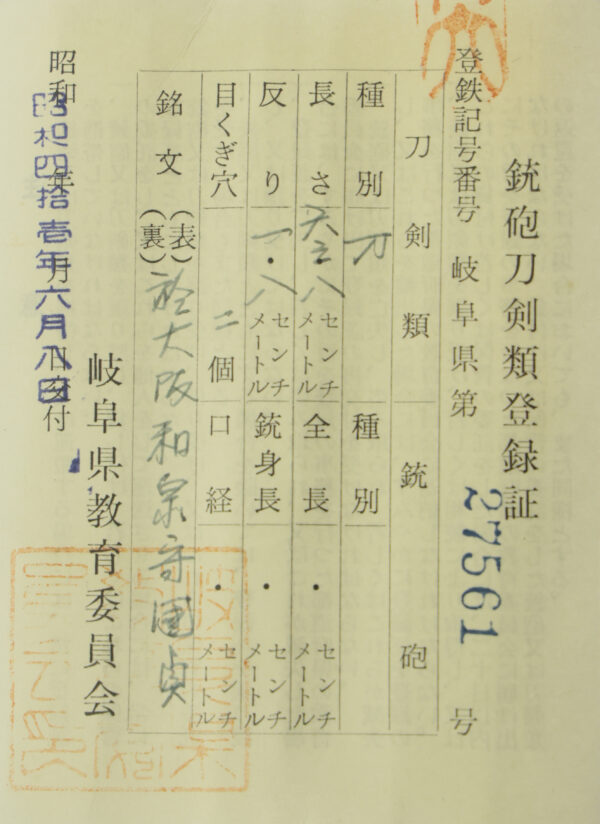 銃砲刀剣類登録証
登録記号番号 岐阜県第 27561 号
刀剣類 銃砲
種別 刀 種別
長さ センチメートル 全長 ・ センチメートル
反り 一・八 センチメートル 銃身長 ・ センチメートル
目くぎ穴 二個 口経 ・ センチメートル
銘文 (表)(裏) 於大阪和泉守國貞
岐阜県教育委員会
昭和 年 月 日交付
昭和四拾壱年六月八日